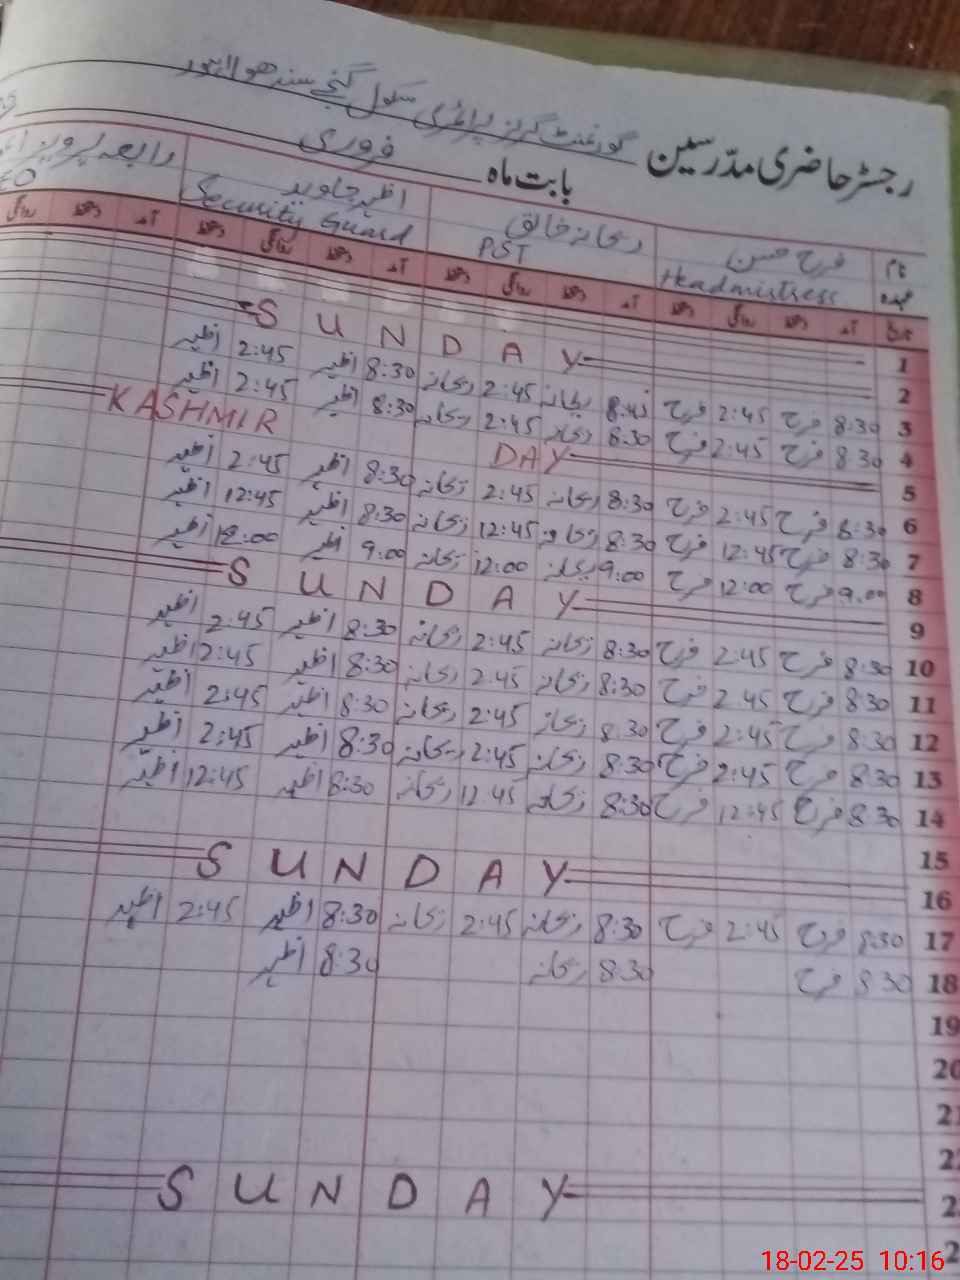 گورنمنٹ گرلز پرائمری سکول گنجے سندھو لاہور
رجسٹر حاضری مدرسین بابت ماہ فروری
نام فرح حسن ریحانہ خالق اظہر جاوید رابعہ پرویز
عہدہ Headmistress PST Security Guard
تاریخ آمد دستخط روانگی دستخط آمد دستخط روانگی دستخط آمد دستخط روانگی دستخط آمد دستخط روانگی
1
2 SUNDAY
3 8:30 فرح 2:45 فرح 8:45 ریحانہ 2:45 ریحانہ 8:30 اظہر 2:45 اظہر
4 8:30 فرح 2:45 فرح 8:30 ریحانہ 2:45 ریحانہ 8:30 اظہر 2:45 اظہر
5 KASHMIR DAY
6 8:30 فرح 2:45 فرح 8:30 ریحانہ 2:45 ریحانہ 8:30 اظہر 2:45 اظہر
7 8:30 فرح 12:45 فرح 8:30 ریحانہ 12:45 ریحانہ 8:30 اظہر 12:45 اظہر
8 9:00 فرح 12:00 فرح 9:00 ریحانہ 12:00 ریحانہ 9:00 اظہر 12:00 اظہر
9 SUNDAY
10 8:30 فرح 2:45 فرح 8:30 ریحانہ 2:45 ریحانہ 8:30 اظہر 2:45 اظہر
11 8:30 فرح 2:45 فرح 8:30 ریحانہ 2:45 ریحانہ 8:30 اظہر 2:45 اظہر
12 8:30 فرح 2:45 فرح 8:30 ریحانہ 2:45 ریحانہ 8:30 اظہر 2:45 اظہر
13 8:30 فرح 2:45 فرح 8:30 ریحانہ 2:45 ریحانہ 8:30 اظہر 2:45 اظہر
14 8:30 فرح 12:45 فرح 8:30 ریحانہ 12:45 ریحانہ 8:30 اظہر 12:45 اظہر
15
16 SUNDAY
17 8:30 فرح 2:45 فرح 8:30 ریحانہ 2:45 ریحانہ 8:30 اظہر 2:45 اظہر
18 8:30 فرح 8:30 ریحانہ 8:30 اظہر
19
20
21
SUNDAY
18-02-25 10:16